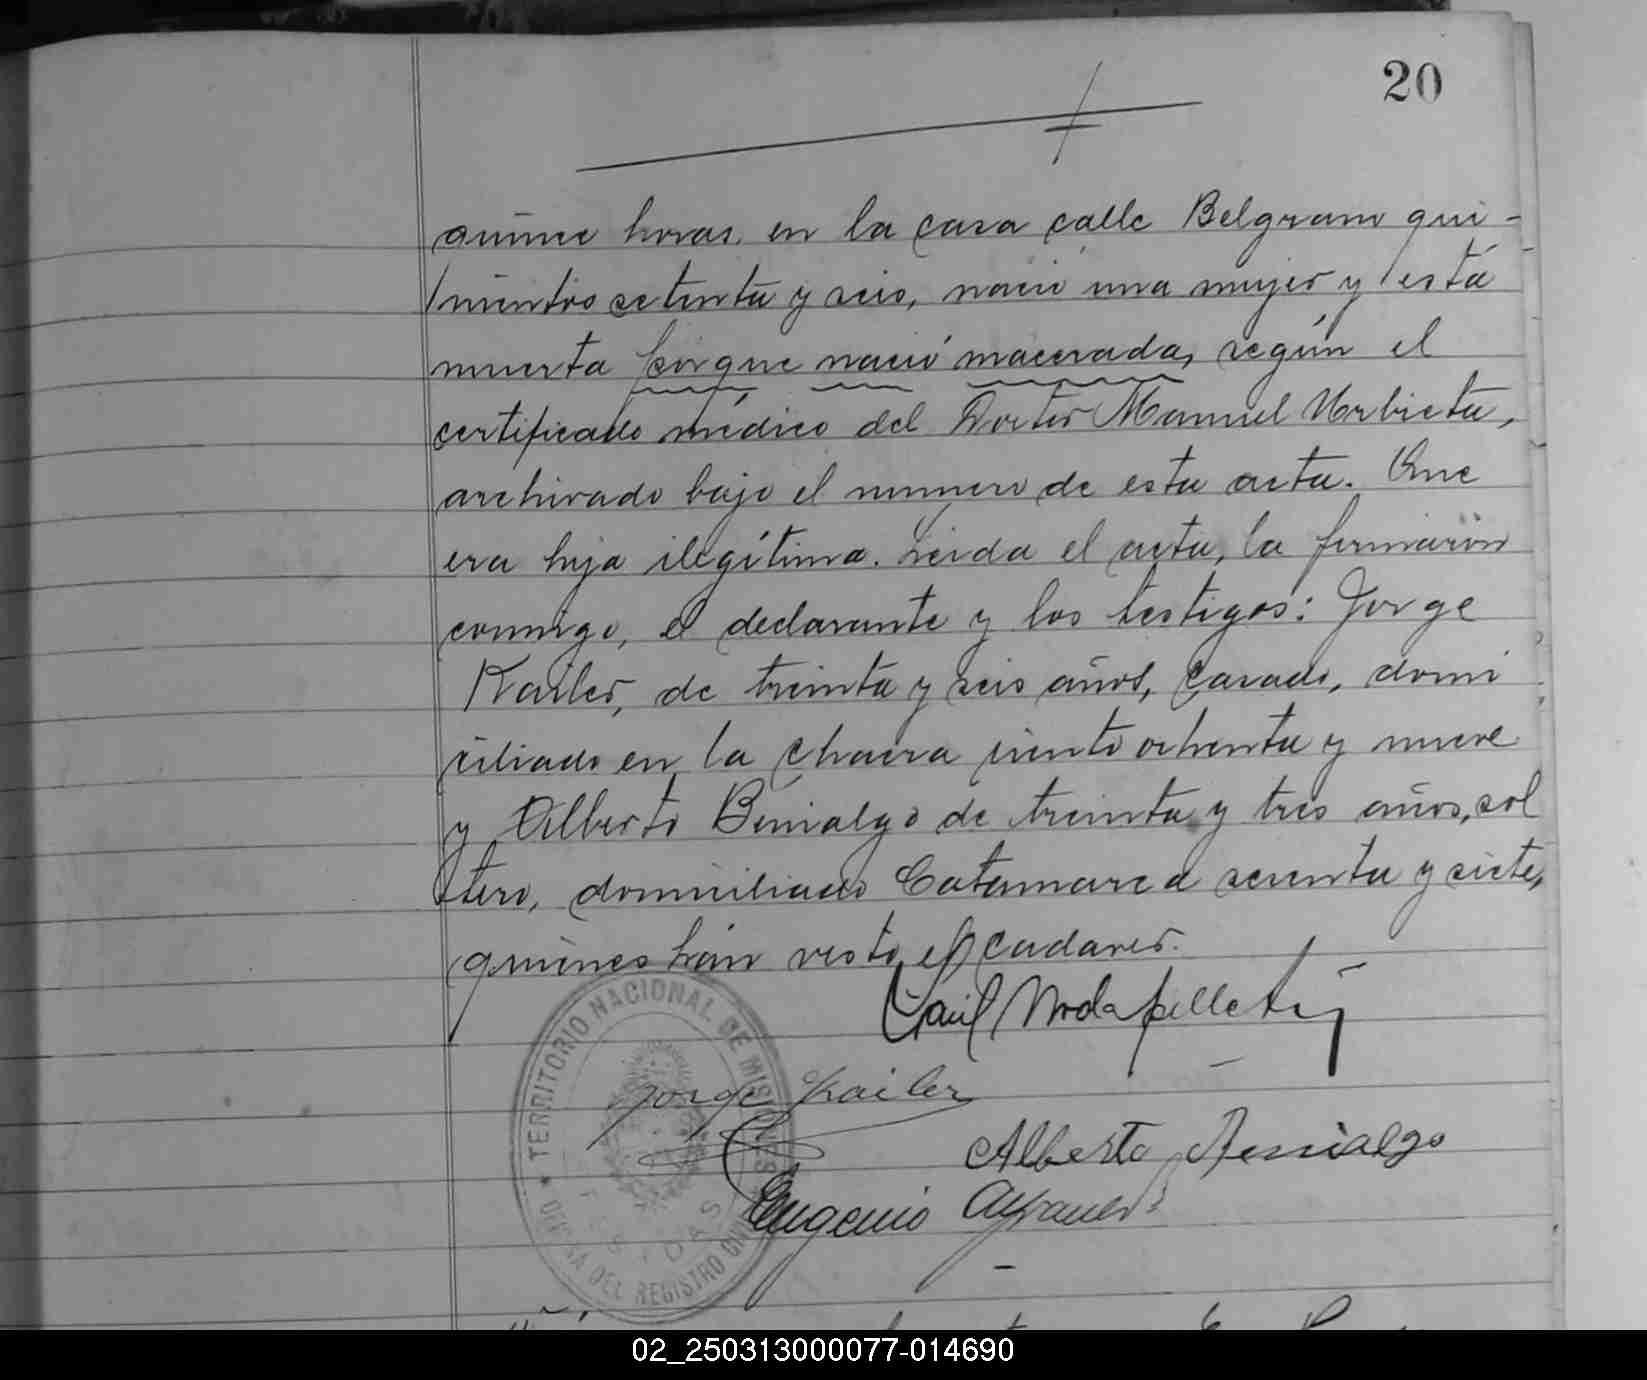 20
quince horas, en la casa calle Belgrano qui-
nientos setenta y seis, nació una mujer y está
muerta porque nació macerada, según el
certificado médico del Doctor Manuel Urbieta,
archivado bajo el numero de esta acta. Que
era hija ilegítima. Leida el acta, la firmaron
conmigo, el declarante y los testigos: Jorge
Kailer, de treinta y seis años, casado, domi
ciliado en la chacra ciento ochenta y nueve
y Alberto Benialgo de treinta y tres años, sol
tero, domiciliado Catamarca sesenta y siete,
quienes han visto el cadaver.
Raúl
Jorge Kailer
Alberto Benialgo
Eugenio
TERRITORIO NACIONAL DE MISIONES
OFICINA DEL REGISTRO CIVIL
POSADAS
02_250313000077-014690